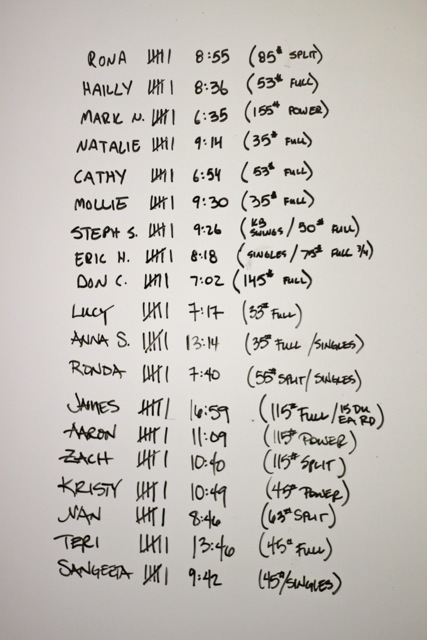 RONA 𝍸I 8:55 (85# SPLIT)
HAILLY 𝍸I 8:36 (53# FULL)
MARK N. 𝍸I 6:35 (155# POWER)
NATALIE 𝍸I 9:14 (35# FULL)
CATHY 𝍸I 6:54 (53# FULL)
MOLLIE 𝍸I 9:30 (35# FULL)
STEPH S. 𝍸I 9:26 (KB SWINGS/50# FULL)
ERIC H. 𝍸I 8:18 (SINGLES/75# FULL 3/4)
DON C. 𝍸I 7:02 (145# FULL)
LUCY 𝍸I 7:17 (33# FULL)
ANNA S. 𝍸I 13:14 (35# FULL/SINGLES)
RONDA 𝍸I 7:40 (55# SPLIT/SINGLES)
JAMES 𝍸I 16:59 (115# FULL/15 DU EA RD)
AARON 𝍸I 11:09 (115# POWER)
ZACH 𝍸I 10:40 (115# SPLIT)
KRISTY 𝍸I 10:49 (45# POWER)
𝍸I 8:46 (63# SPLIT)
TERI 𝍸I 13:46 (45# FULL)
SANGEETA 𝍸I 9:42 (45#/SINGLES)